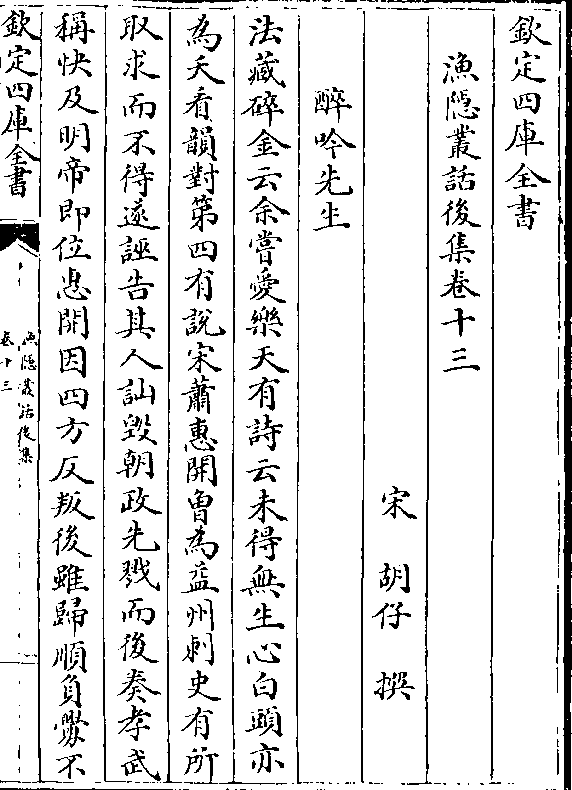 欽定四庫全書
漁隱叢話後集卷十三
宋 胡仔 撰
醉吟先生
法藏碎金云余嘗愛樂天有詩云未得無生心白頭亦
為夭看韻對第四有說宋蕭惠開曽為益州刺史有所
取求而不得遂誣告其人訕毀朝政先戮而後奏孝武
稱快及明帝即位惠開因四方反叛後雖歸順負釁不
欽定四庫全書
漁隱叢話後集
卷十三